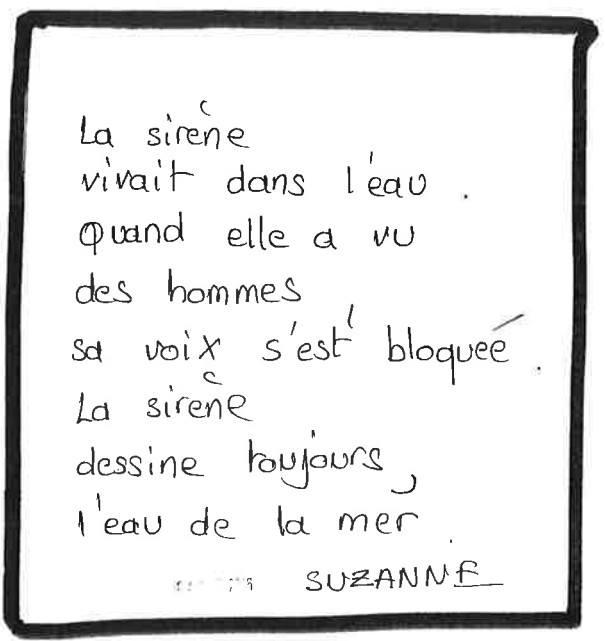 La sirène
vivait dans l'eau.
Quand elle a vu
des hommes
sa voix s'est bloquée.
La sirène
dessine toujours,
l'eau de la mer.
SUZANNE